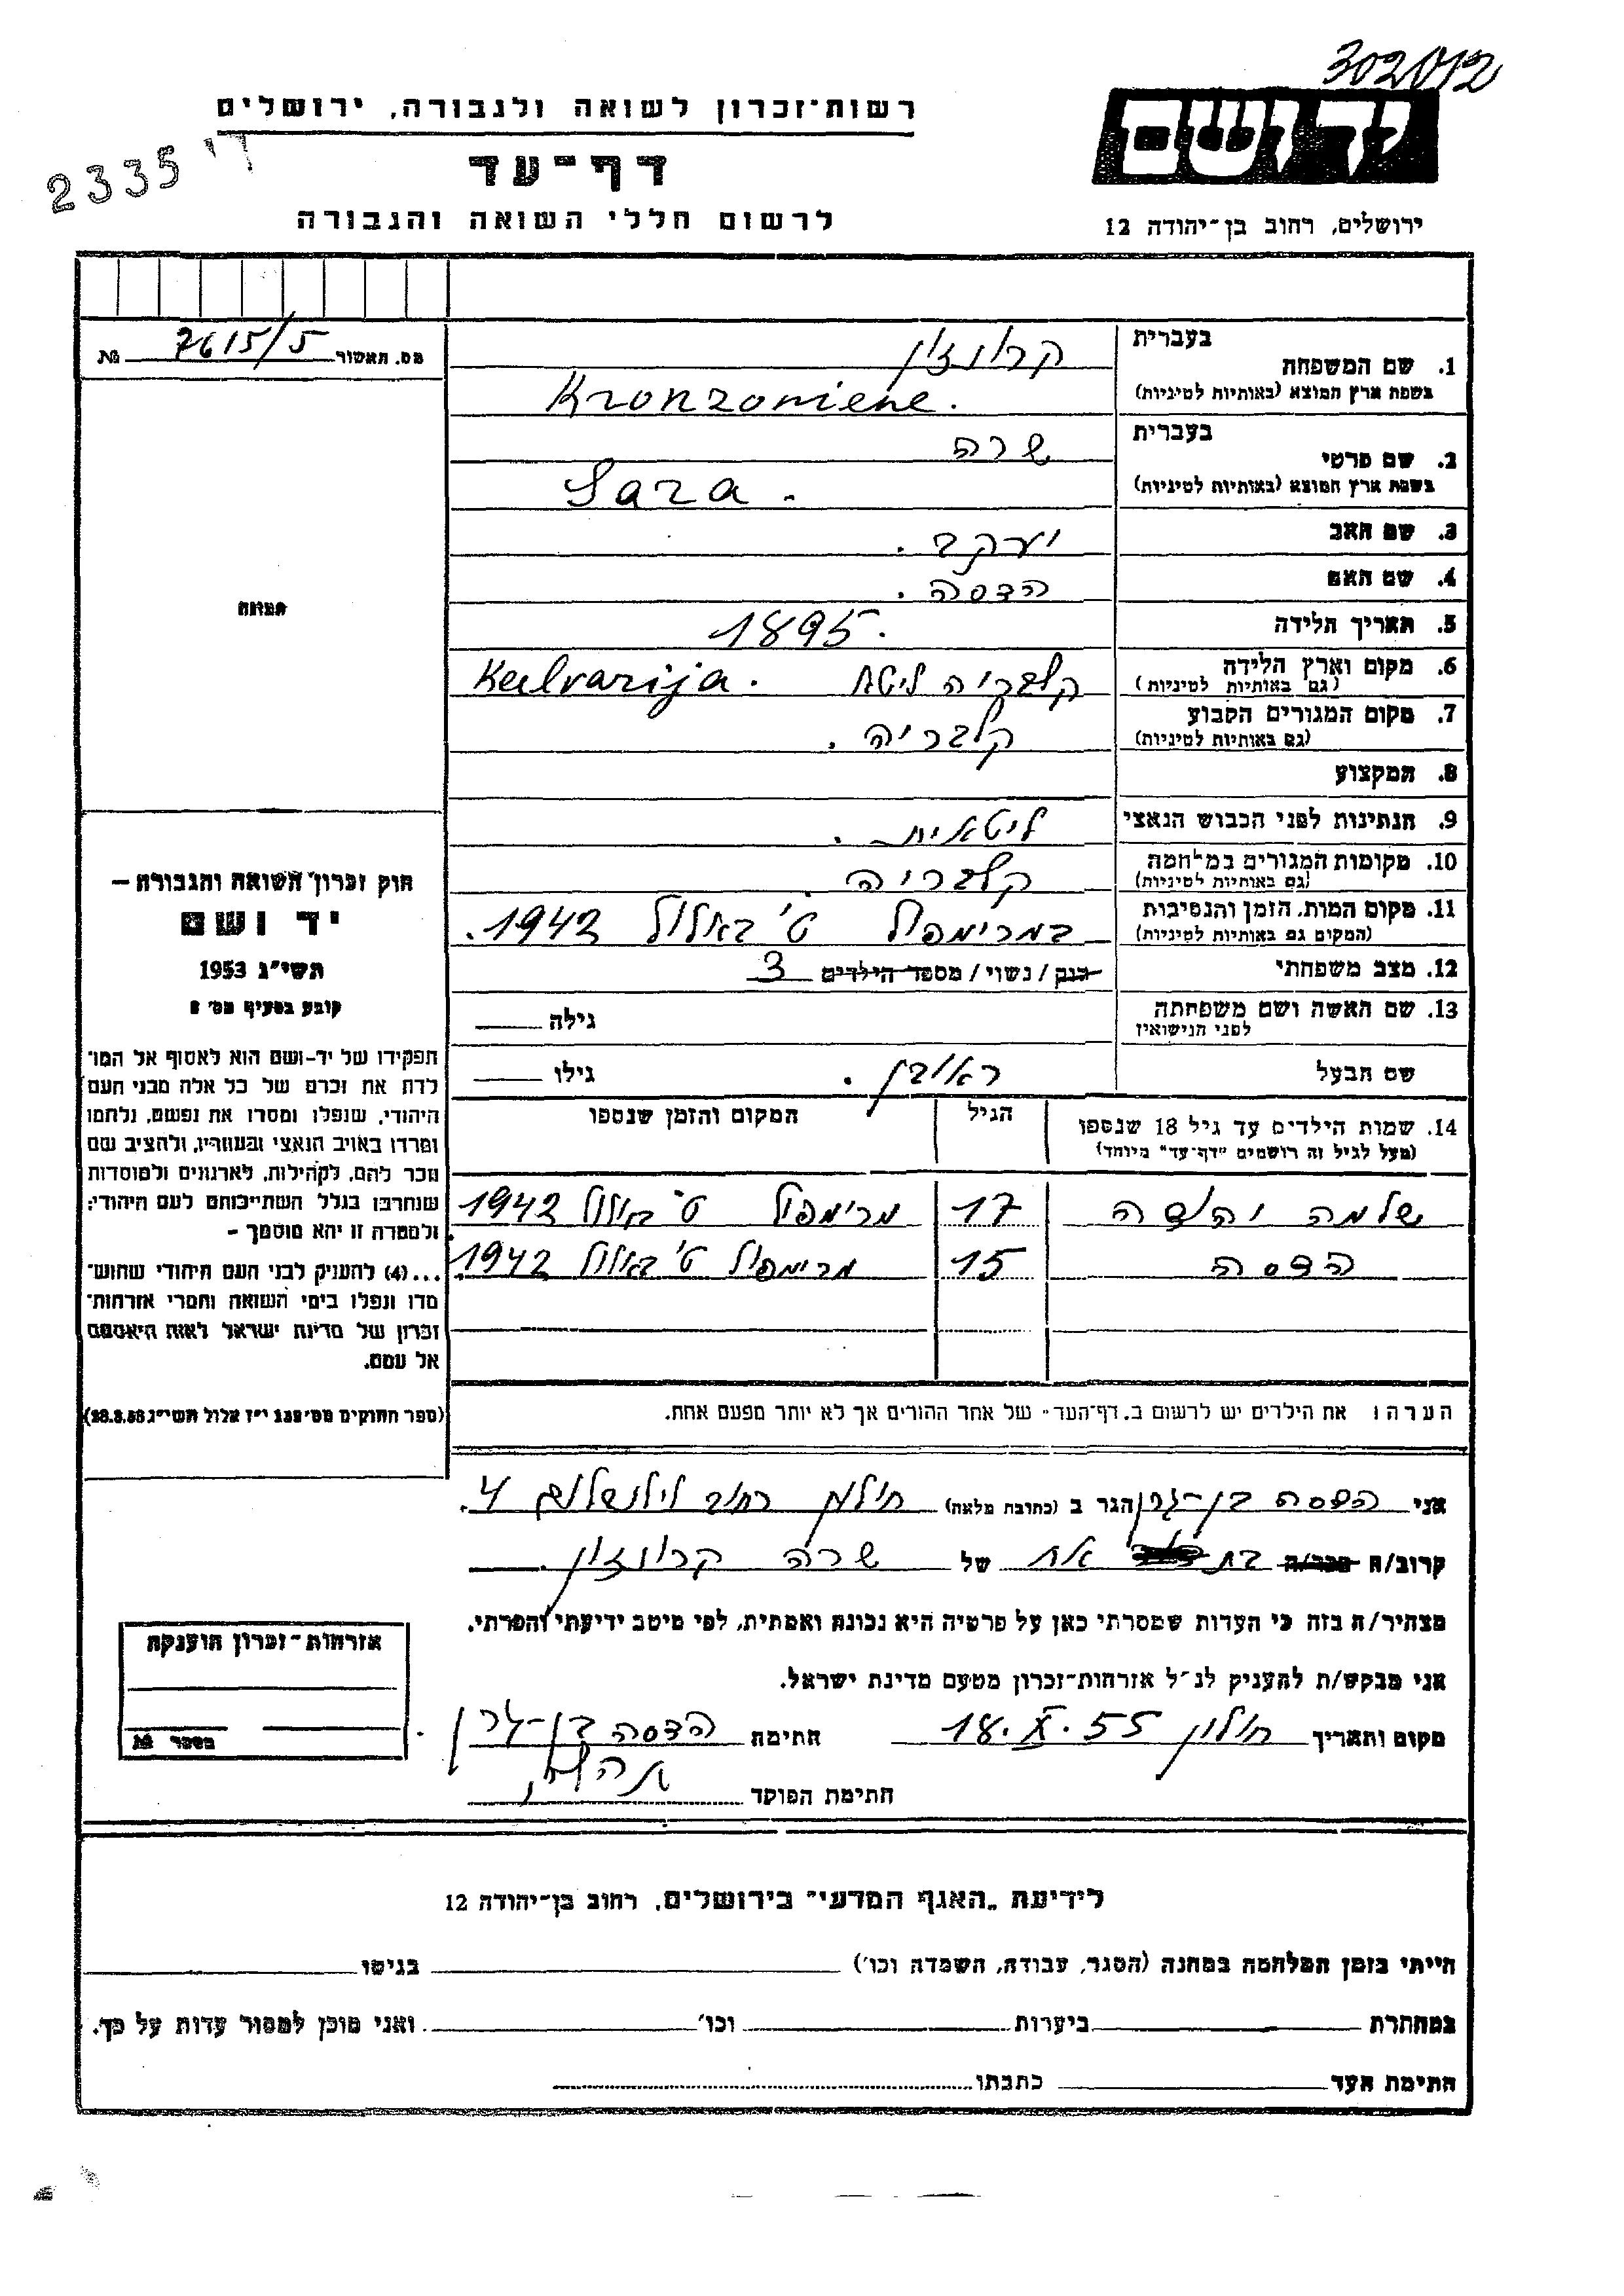 302012
רשות־זכרון לשואה ולגבורה, ירושלים
יד ושם
2335  די
דף־עד
לרשום חללי השואה והגבורה
ירושלים, רחוב בן־יהודה 12
מס. האשור 7615/5 №
בעברית
1. שם המשפחה קרונזון
בשפת ארץ המוצא (באותיות לטיניות) Kronzoniene.
בעברית
2. שם פרטי שרה
בשפת ארץ המוצא (באותיות לטיניות) Sara.
3. שם האב יעקב.
4. שם האם הדסה.
5. תאריך הלידה 1895.
6. מקום וארץ הלידה קלבריה ליטא Kalvarija.
(גם באותיות לטיניות)
7. מקום המגורים הקבוע קלבריה.
(גם באותיות לטיניות)
8. המקצוע
9. הנתינות לפני הכבוש הנאצי ליטאית.
10. מקומות המגורים במלחמה קלבריה.
(גם באותיות לטיניות)
11. מקום המות, הזמן והנסיבות במרימפול ט' באלול 1942.
(המקום גם באותיות לטיניות)
12. מצב משפחתי רווק / נשוי / מספר הילדים 3
13. שם האשה ושם משפחתה גילה
לפני הנישואין
שם הבעל ראובן. גילו
14. שמות הילדים עד גיל 18 שנספו הגיל המקום והזמן שנספו
(מעל לגיל זה רושמים "דף־עד" מיוחד)
שלמה יהודה 17 מרימפול ט' באלול 1942
הדסה 15 מרימפול ט' באלול 1942.
הערה: את הילדים יש לרשום ב„דף־העד" של אחד ההורים אך לא יותר מפעם אחת.
תמונה
חוק זכרון השואה והגבורה —
יד ושם
תשי"ג 1953
קובע בסעיף מס' 2
תפקידו של יד־ושם הוא לאסוף אל המו־
לדת את זכרם של כל אלה מבני העם
היהודי, שנפלו ומסרו את נפשם, נלחמו
ומרדו באויב הנאצי ובעוזריו, ולהציב שם
וזכר להם, לקהילות, לארגונים ולמוסדות
שנחרבו בגלל השתייכותם לעם היהודי;
ולמטרה זו יהא מוסמך —
...(4) להעניק לבני העם היהודי שהוש־
מדו ונפלו בימי השואה והמרי אזרחות־
זכרון של מדינת ישראל לאות היאספם
אל עמם.
(ספר החוקים מס' 132 י"ז אלול תשי"ג 28.8.53)
אני הדסה בן־ הגר ב (כתובת מלאה) חולון רחוב 4.
קרוב/ה מכר/ה בת אח של שרה קרונזון.
מצהיר/ה בזה כי העדות שמסרתי כאן על פרטיה היא נכונה ואמתית, לפי מיטב ידיעתי והכרתי.
אני מבקש/ת להעניק לנ"ל אזרחות־זכרון מטעם מדינת ישראל.
מקום ותאריך חולון 18.X.55 חתימה הדסה בן־
חתימת הפוקד
אזרחות־זכרון הוענקה
מספר №
לידיעת „האגף המדעי" בירושלים, רחוב בן־יהודה 12
הייתי בזמן המלחמה במחנה (הסגר, עבודה, השמדה וכו') בגיטו
במחתרת ביערות וכו' ואני מוכן למסור עדות על כך.
חתימת העד כתבתו